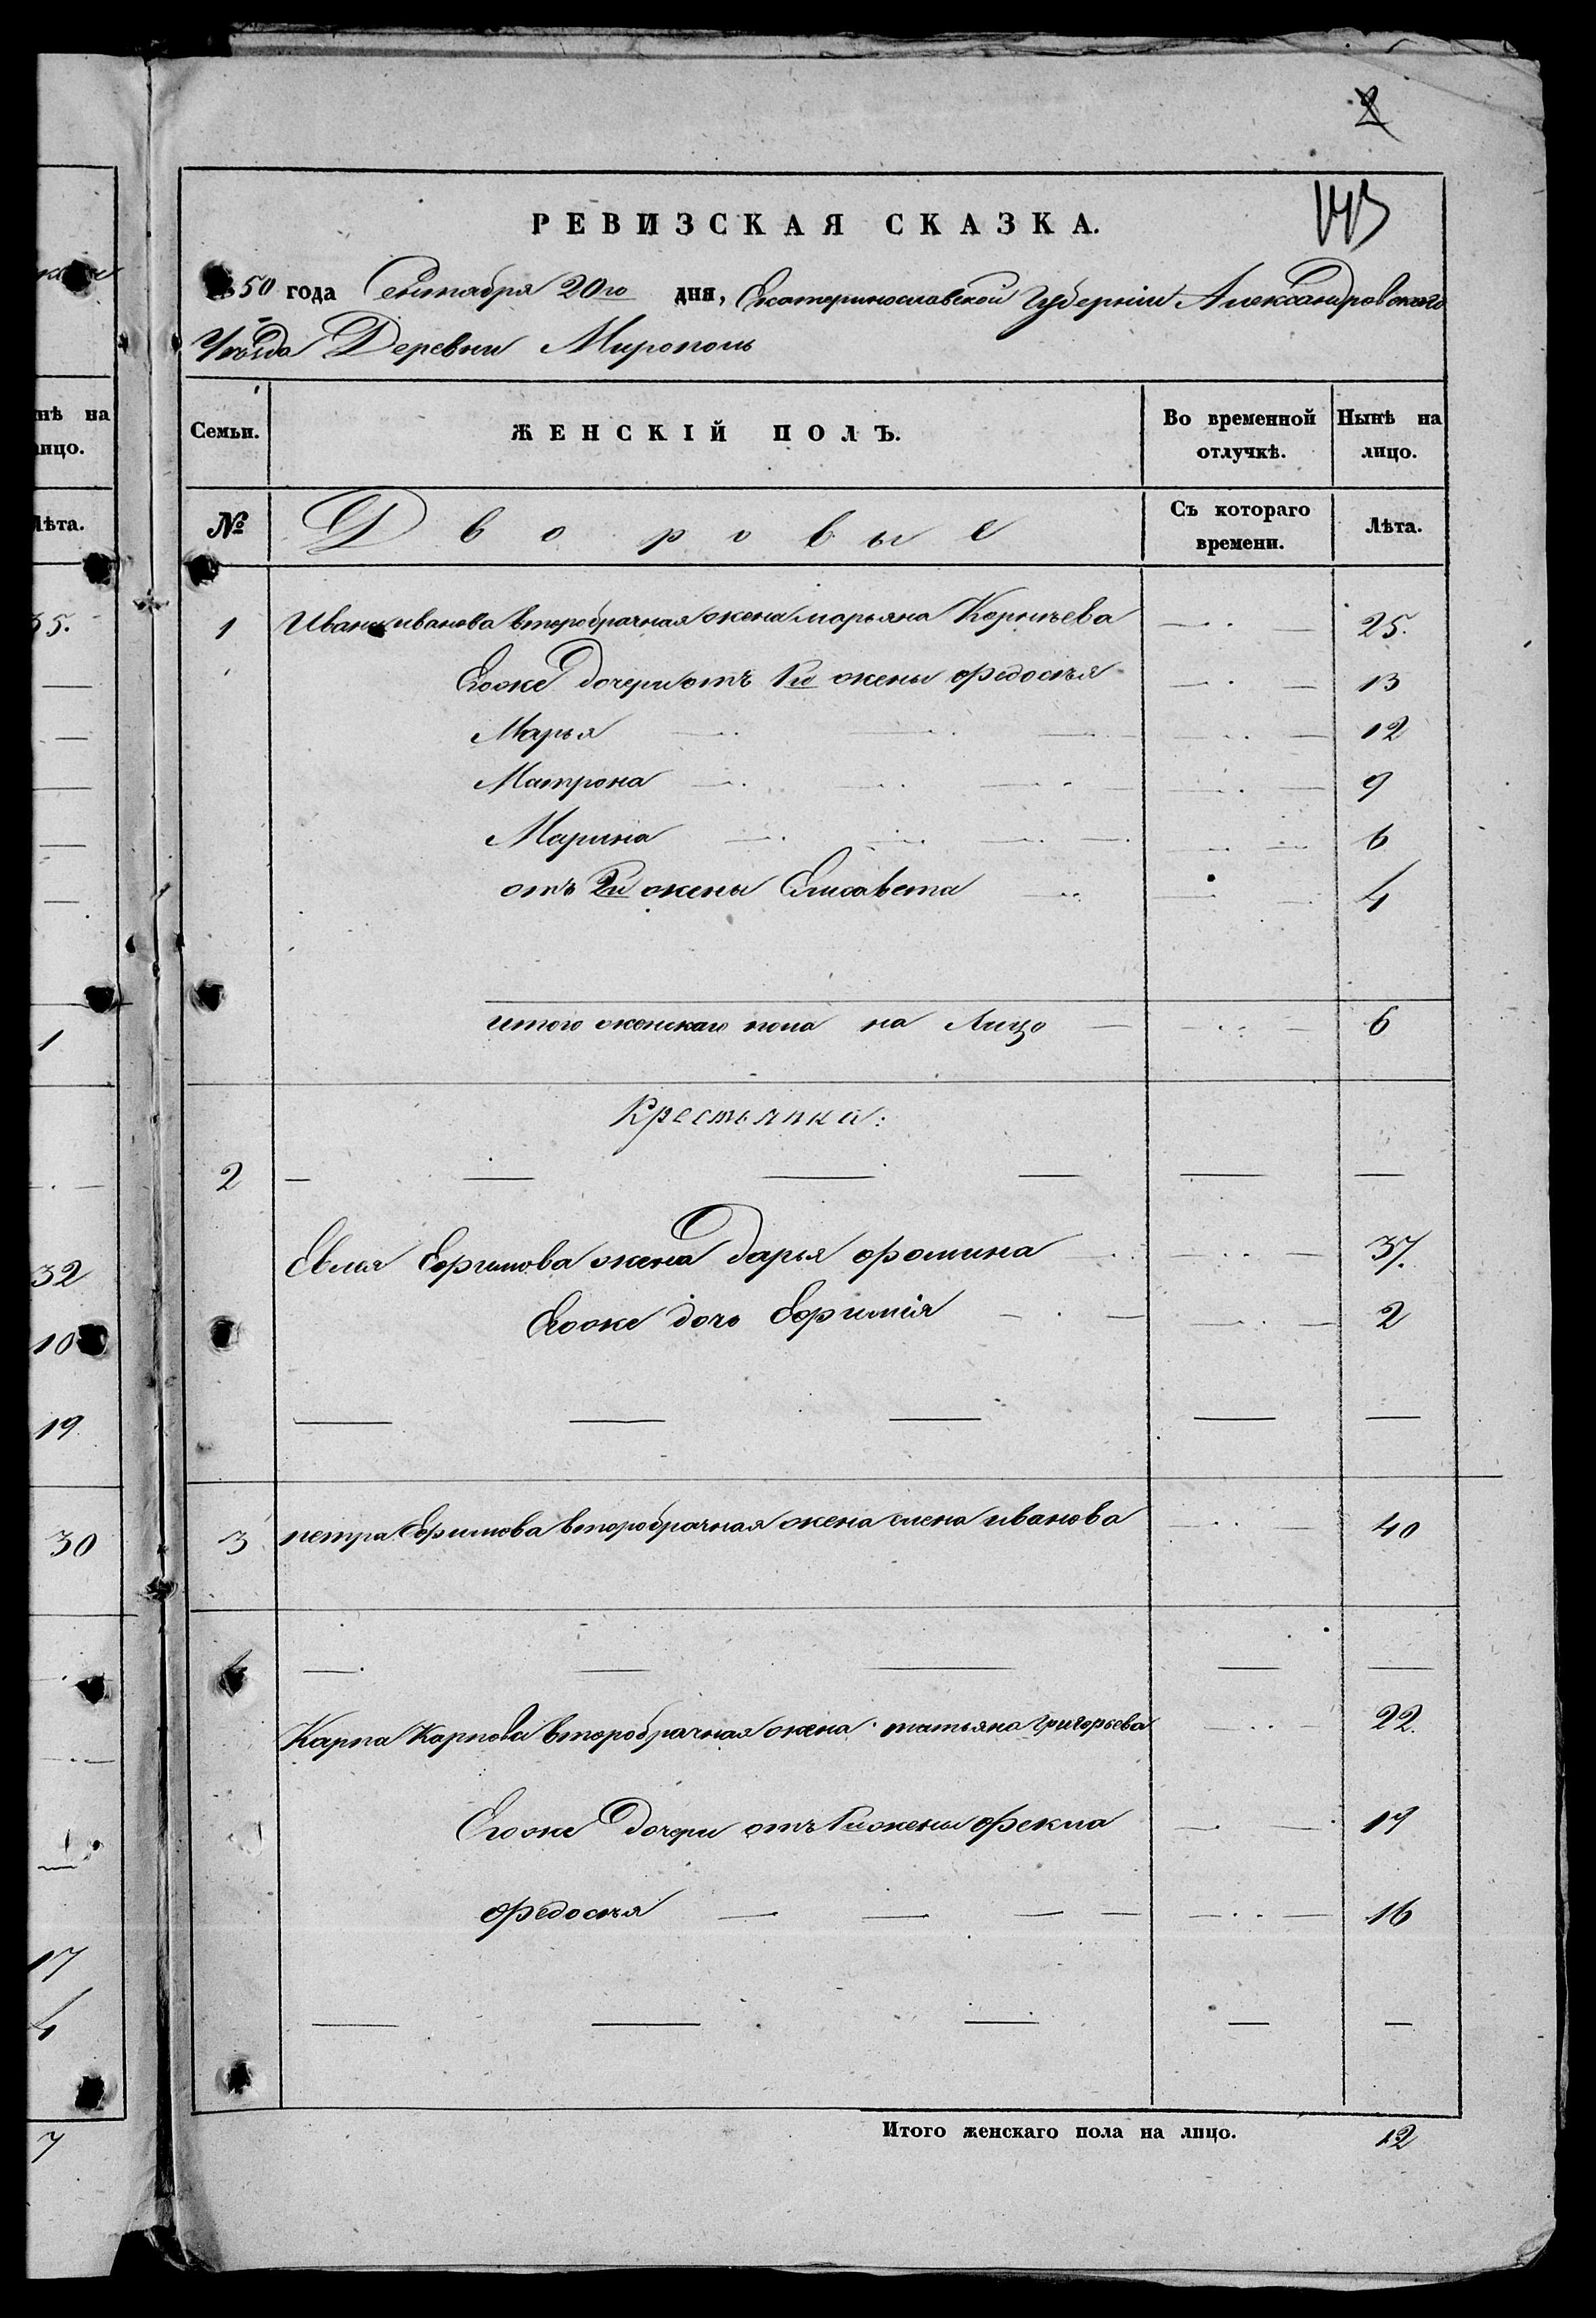 2
143
РЕВИЗСКАЯ СКАЗКА.
1850 года Сентября 20го дня, Екатеринославской Губерніи Александровскаго
Уѣзда Деревни Мирополь
нѣ на
лицо.
Семьи.
ЖЕНСКІЙ ПОЛЪ.
Во временной
отлучкѣ.
Нынѣ на
лицо.
Лѣта.
№
Дворовые
Съ котораго
времени.
Лѣта.
35.
1 Ивана иванова второбрачная жена марьяна Корнѣева 25.
Егоже дочери отъ 1й жены федосья 13
Марья 12
Матрона 9
Марина 6
отъ 2й жены Елисавета 4
итого женскаго пола на лицо 6
1
Крестьянка:
2
Евлея Ефимова жена дарья фомина 37.
32
Егоже дочь Ефимія 2
10
19
3 петра Ефимова второбрачная жена елена иванова 40
30
4
Карпа Карпова второбрачная жена татьяна григорьева 22.
Егоже дочери отъ 1й жены фекла 19
1
федосья 16
17
4
Итого женскаго пола на лицо. 12
7